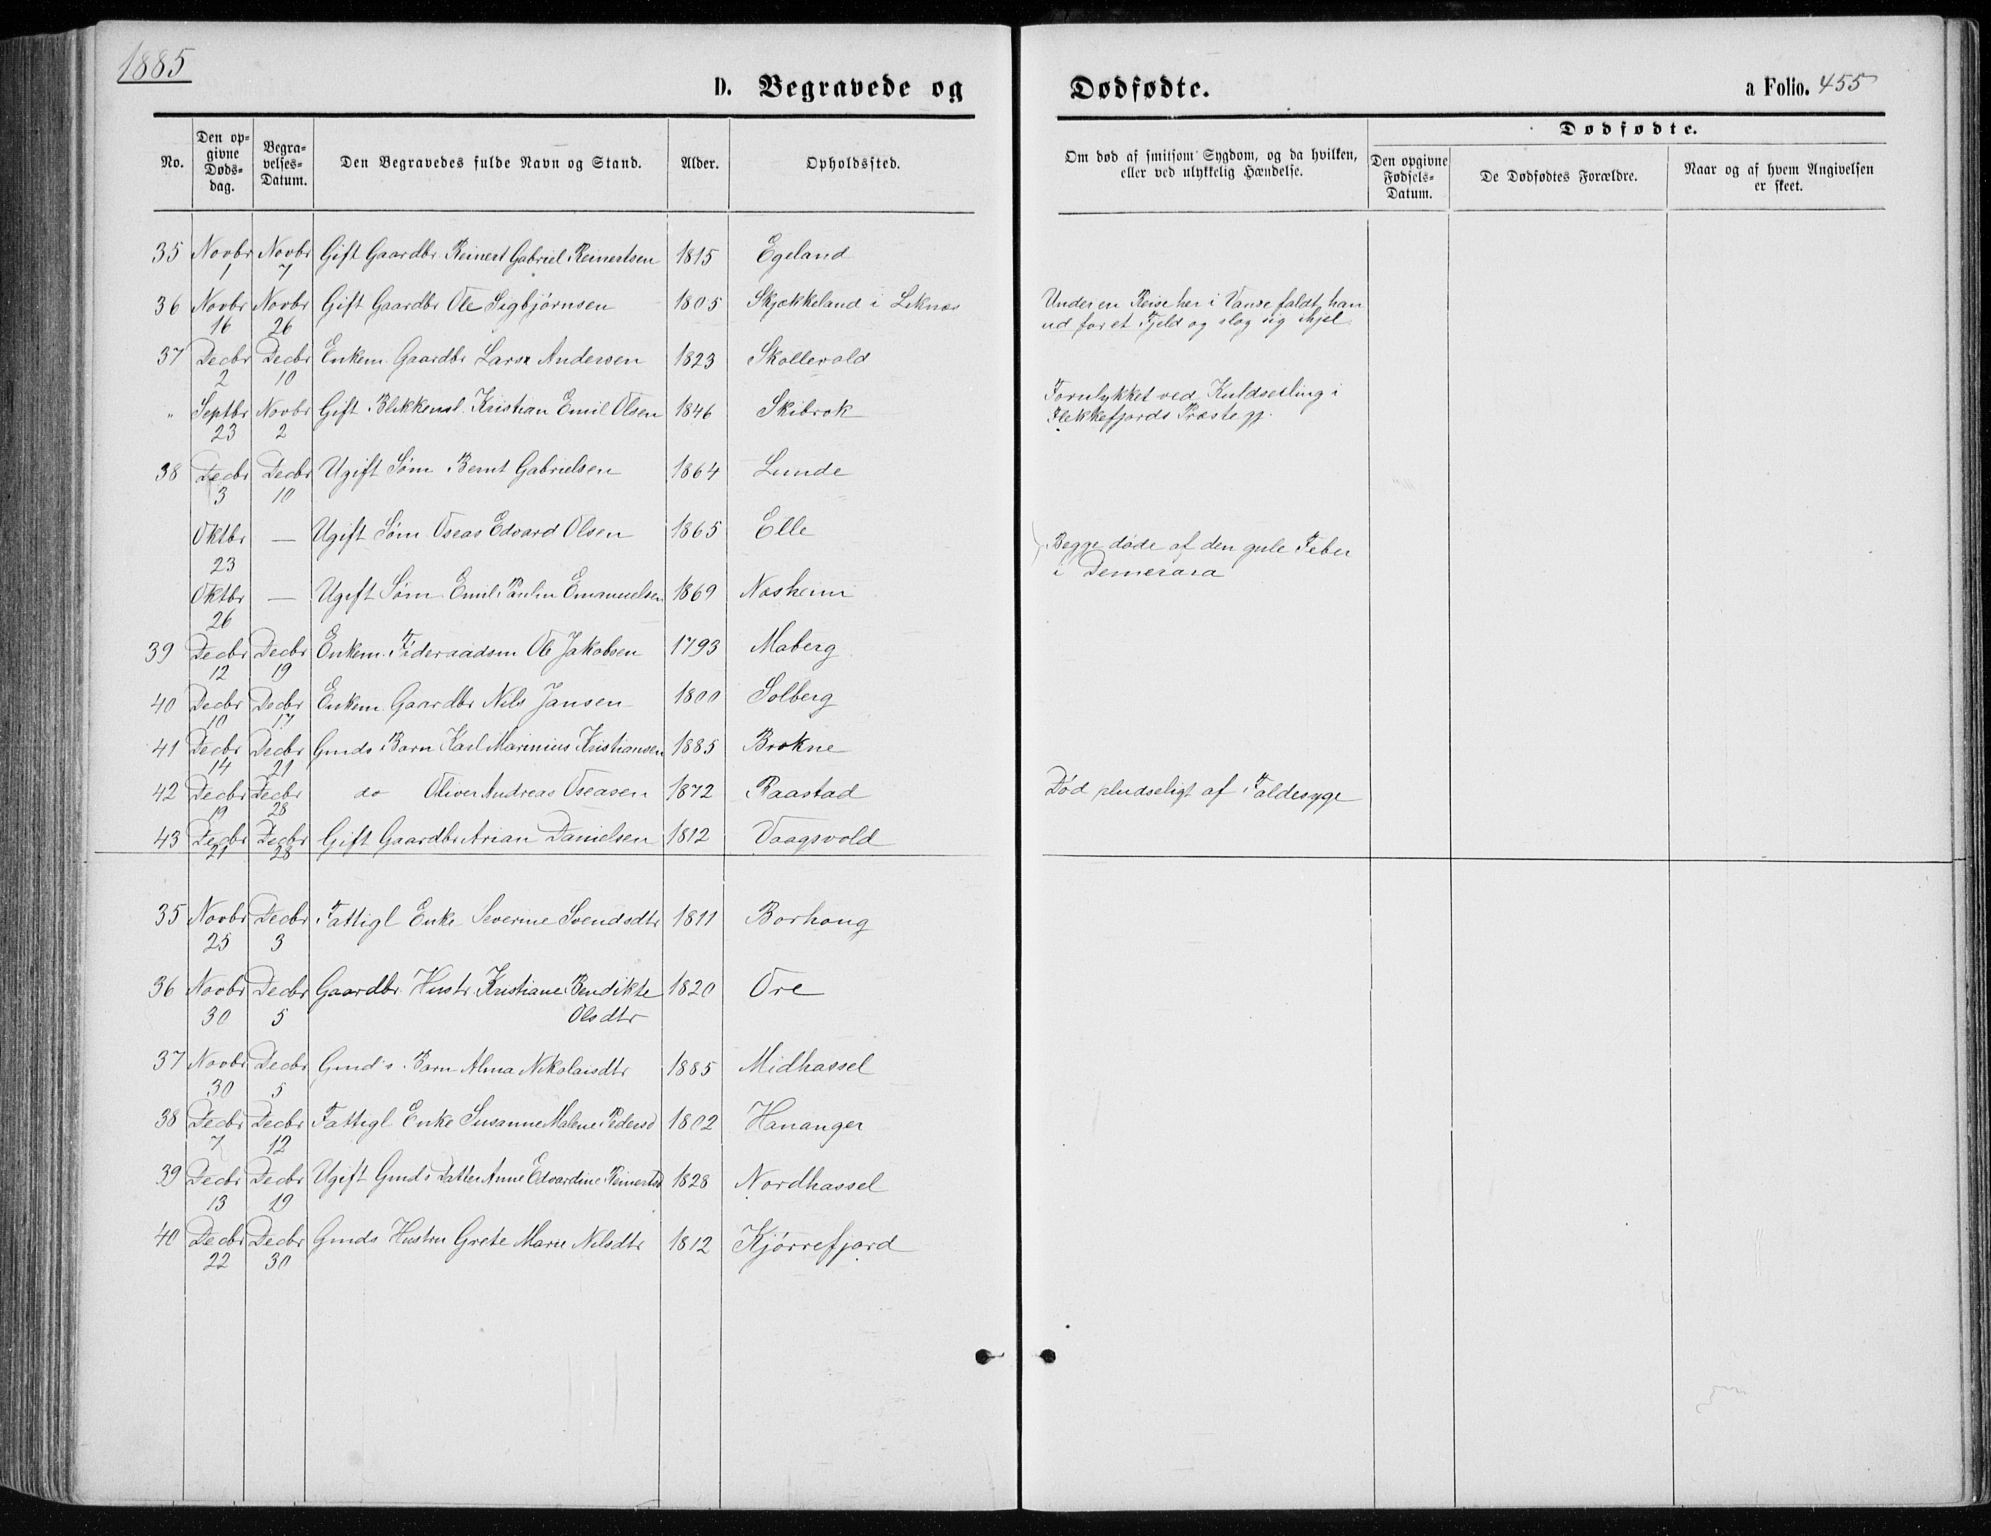 1885
D. Begravede og Dødfødte. a Folio. 455
No. Den opgivne Dødsdag. Begravelses-Datum. Den Begravedes fulde Navn og Stand. Alder. Opholdssted. Om død af smitsom Sygdom, og da hvilken, eller ved ulykkelig Hændelse. Dødfødte. Den opgivne Fødsels-Datum. De Dødfødtes Forældre. Naar og af hvem Angivelsen er skeet.
35 Novbr 1 Novbr 7 Gift Gaardbr Reinert Gabriel Reinertsen 1815 Egeland
36 Novbr 16 Novbr 26 Gift Gaardbr Ole Sigbjørnsen 1805 Skjækkeland i Liknes Under en Reise her i Vanse faldt han
ud for et Fjeld og slog sig ihjel
37 Decbr 2 Decbr 10 Enkem. Gaardbr Lars Andersen 1823 Skollevold
" Septbr 23 Novbr 2 Gift Blikkensl. Kristian Emil Olsen 1846 Skibrok Forulykket ved Kuldseiling i
Flekkefjords Præstegj.
38 Decbr 3 Decbr 10 Ugift Søm. Bernt Gabrielsen 1864 Lunde
Oktbr 23 — Ugift Søm. Oseas Edvard Olsen 1865 Elle Begge døde af den gule Feber
i Demerara
Oktbr 26 — Ugift Søm. Emil Paulin Emanuelsen 1869 Nesheim
39 Decbr 12 Decbr 19 Enkem. Føderaadsm Ole Jakobsen 1793 Maberg
40 Decbr 10 Decbr 17 Enkem. Gaardbr Nils Jansen 1800 Solberg
41 Decbr 14 Decbr 21 Gmds Barn Karl Marinius Kristiansen 1885 Brekne
42 Decbr 19 Decbr 28 do Oliver Andreas Oseasen 1872 Raastad Død pludseligt af Faldesyge
43 Decbr 21 Decbr 28 Gift Gaardbr Arian Danielsen 1812 Vaagsvold
35 Novbr 25 Decbr 3 Fattigl Enke Severine Svendsdtr 1811 Borhaug
36 Novbr 30 Decbr 5 Gaardbr. Hustr. Kristiane Bendikte 1820 Ore
Olsdtr
37 Novbr 30 Decbr 5 Gmd's Barn Alma Nikolaisdtr 1885 Midhassel
38 Decbr 7 Decbr 12 Fattigl Enke Susanne Malene Pedersd 1802 Hananger
39 Decbr 13 Decbr 19 Ugift Gmd's Datter Anne Edvardine Reinertsd 1828 Nordhassel
40 Decbr 22 Decbr 30 Gmds Hustru Grete Marie Nilsdtr 1812 Kjørrefjord